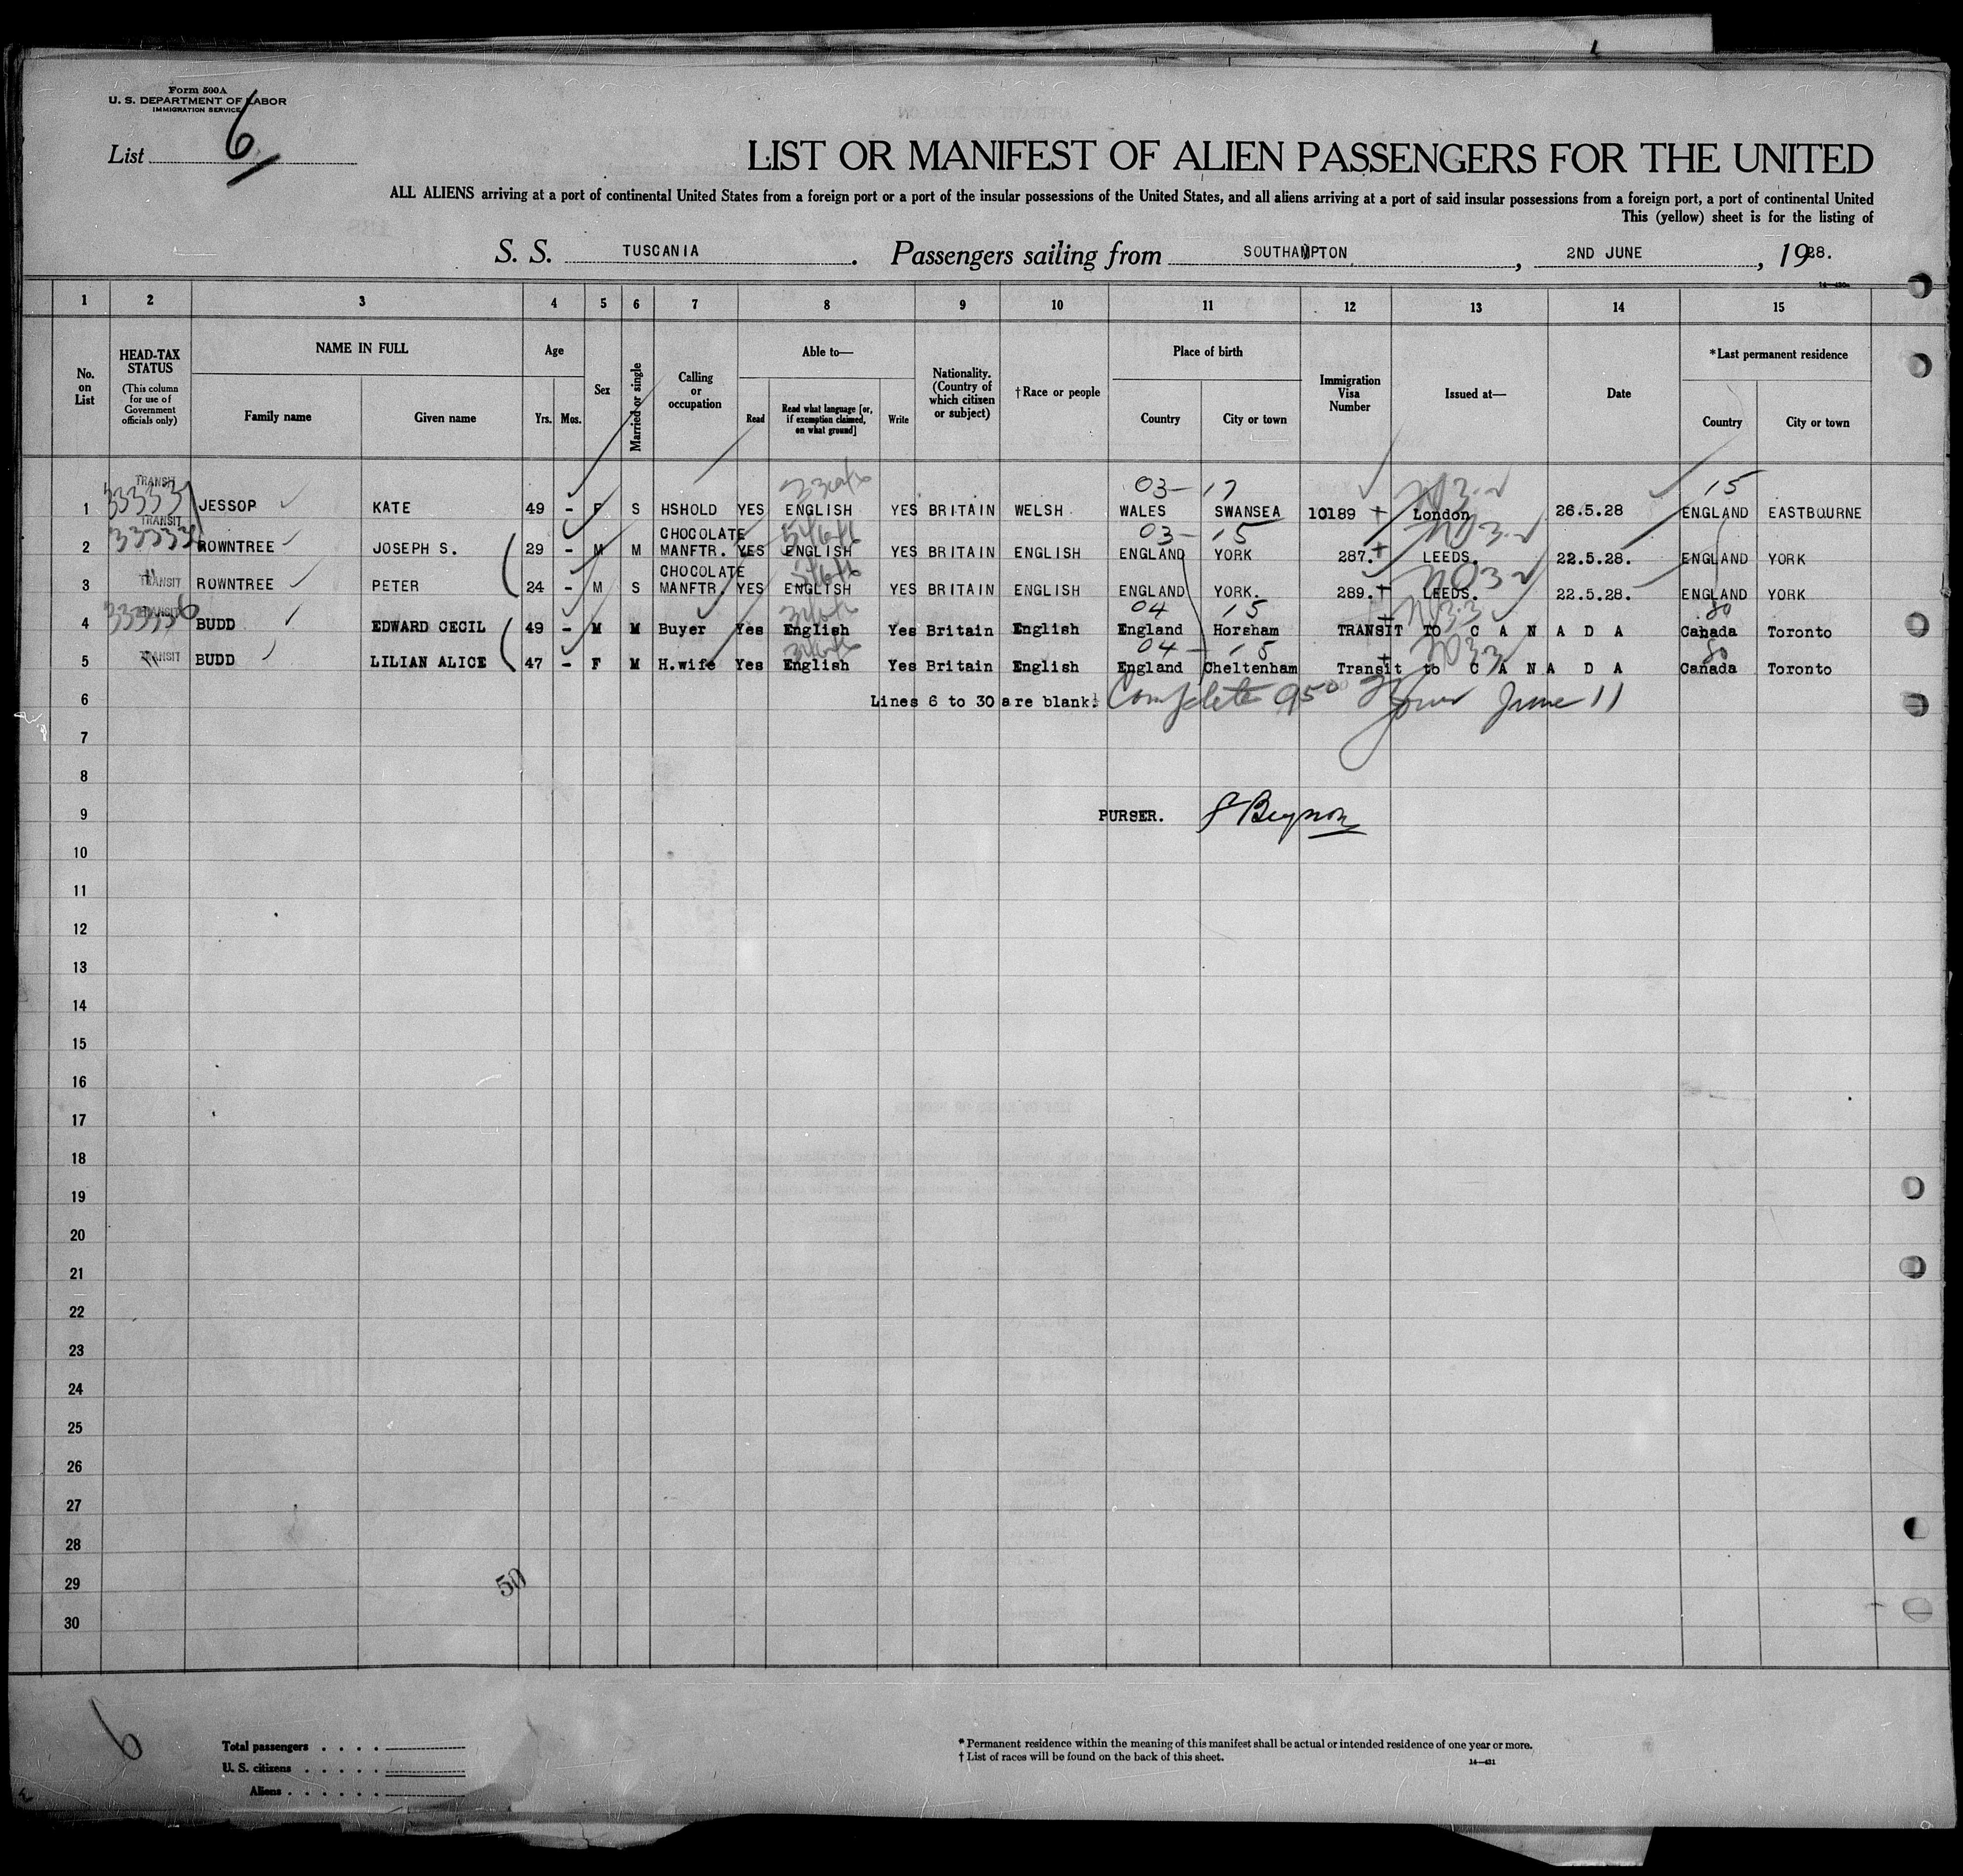 Form 500A
U. S. DEPARTMENT OF LABOR
IMMIGRATION SERVICE
List 6
LIST OR MANIFEST OF ALIEN PASSENGERS FOR THE UNITED
ALL ALIENS arriving at a port of continental United States from a foreign port or a port of the insular possessions of the United States, and all aliens arriving at a port of said insular possessions from a foreign port, a port of continental United
This (yellow) sheet is for the listing of
S. S. TUSCANIA. Passengers sailing from SOUTHAMPTON, 2ND JUNE, 1928.
1 2 3 4 5 6 7 8 9 10 11 12 13 14 15
No. on List
HEAD-TAX STATUS (This column for use of Government officials only)
NAME IN FULL
Family name Given name
Age
Yrs. Mos.
Sex
Married or single
Calling or occupation
Able to—
Read Read what language [or, if exemption claimed, on what ground] Write
Nationality. (Country of which citizen or subject)
†Race or people
Place of birth
Country City or town
Immigration Visa Number
Issued at—
Date
*Last permanent residence
Country City or town
03- 17 15
1 TRANSIT JESSOP KATE 49 - F S HSHOLD YES ENGLISH YES BRITAIN WELSH WALES SWANSEA 10189 London 26.5.28 ENGLAND EASTBOURNE
03- 15
2 TRANSIT ROWNTREE JOSEPH S. 29 - M M CHOCOLATE MANFTR. YES ENGLISH YES BRITAIN ENGLISH ENGLAND YORK 287. LEEDS. 22.5.28. ENGLAND YORK
3 TRANSIT ROWNTREE PETER 24 - M S CHOCOLATE MANFTR. YES ENGLISH YES BRITAIN ENGLISH ENGLAND YORK. 289. LEEDS. 22.5.28. ENGLAND YORK
04 15 80
4 TRANSIT BUDD EDWARD CECIL 49 - M M Buyer Yes English Yes Britain English England Horsham TRANSIT TO C A N A D A Canada Toronto
04 - 15 80
5 TRANSIT BUDD LILIAN ALICE 47 - F M H.wife Yes English Yes Britain English England Cheltenham Transit to C A N A D A Canada Toronto
6 Lines 6 to 30 are blank. Complete 950 June 11
7
8
9 PURSER. J Beynon
10
11
12
13
14
15
16
17
18
19
20
21
22
23
24
25
26
27
28
29 50
30
6
Total passengers . . . .
U. S. citizens . . . . .
Aliens . . . . . .
*Permanent residence within the meaning of this manifest shall be actual or intended residence of one year or more.
†List of races will be found on the back of this sheet.
14—431